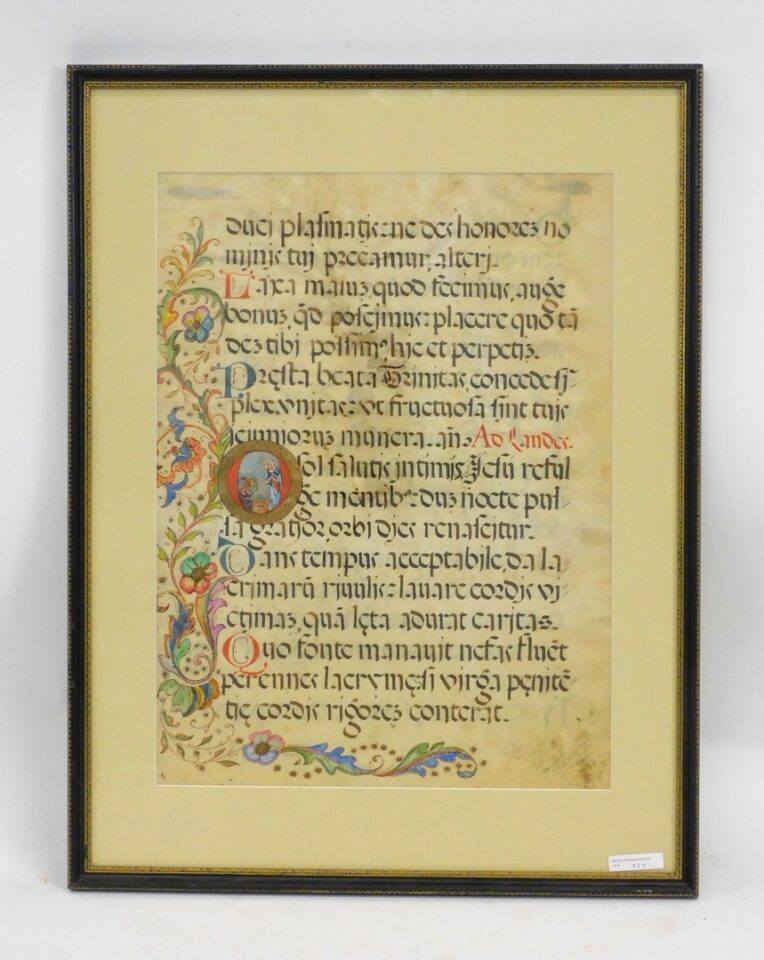 duci plasmatis: ne des honorez no
minis tuj precamur, alterj.
Laxa malus quod fecimus, auge
bonuz, qd poscimus: placere quo tā
dez tibi possimꝰ hic et perpetiz.
Presta beata Trinitas, concede sī-
plex vnitas: vt fructuosa sint tuis
jeiuniorus munera. am̄. Ad Laudes.
O sol salutis intimis, Jesu reful
ge mentibꝰ: duz nocte pul-
sa gratior, orbi dies renascitur.
Dans tempus acceptabile, da la
crimarū riuulis: lauare cordis vi-
ctimaz, quā lęta adurat caritas.
Quo fonte manauit nefas fluēt
perennes lacrymę, si virga pęnitē-
tię cordis rigorez conterat.
334